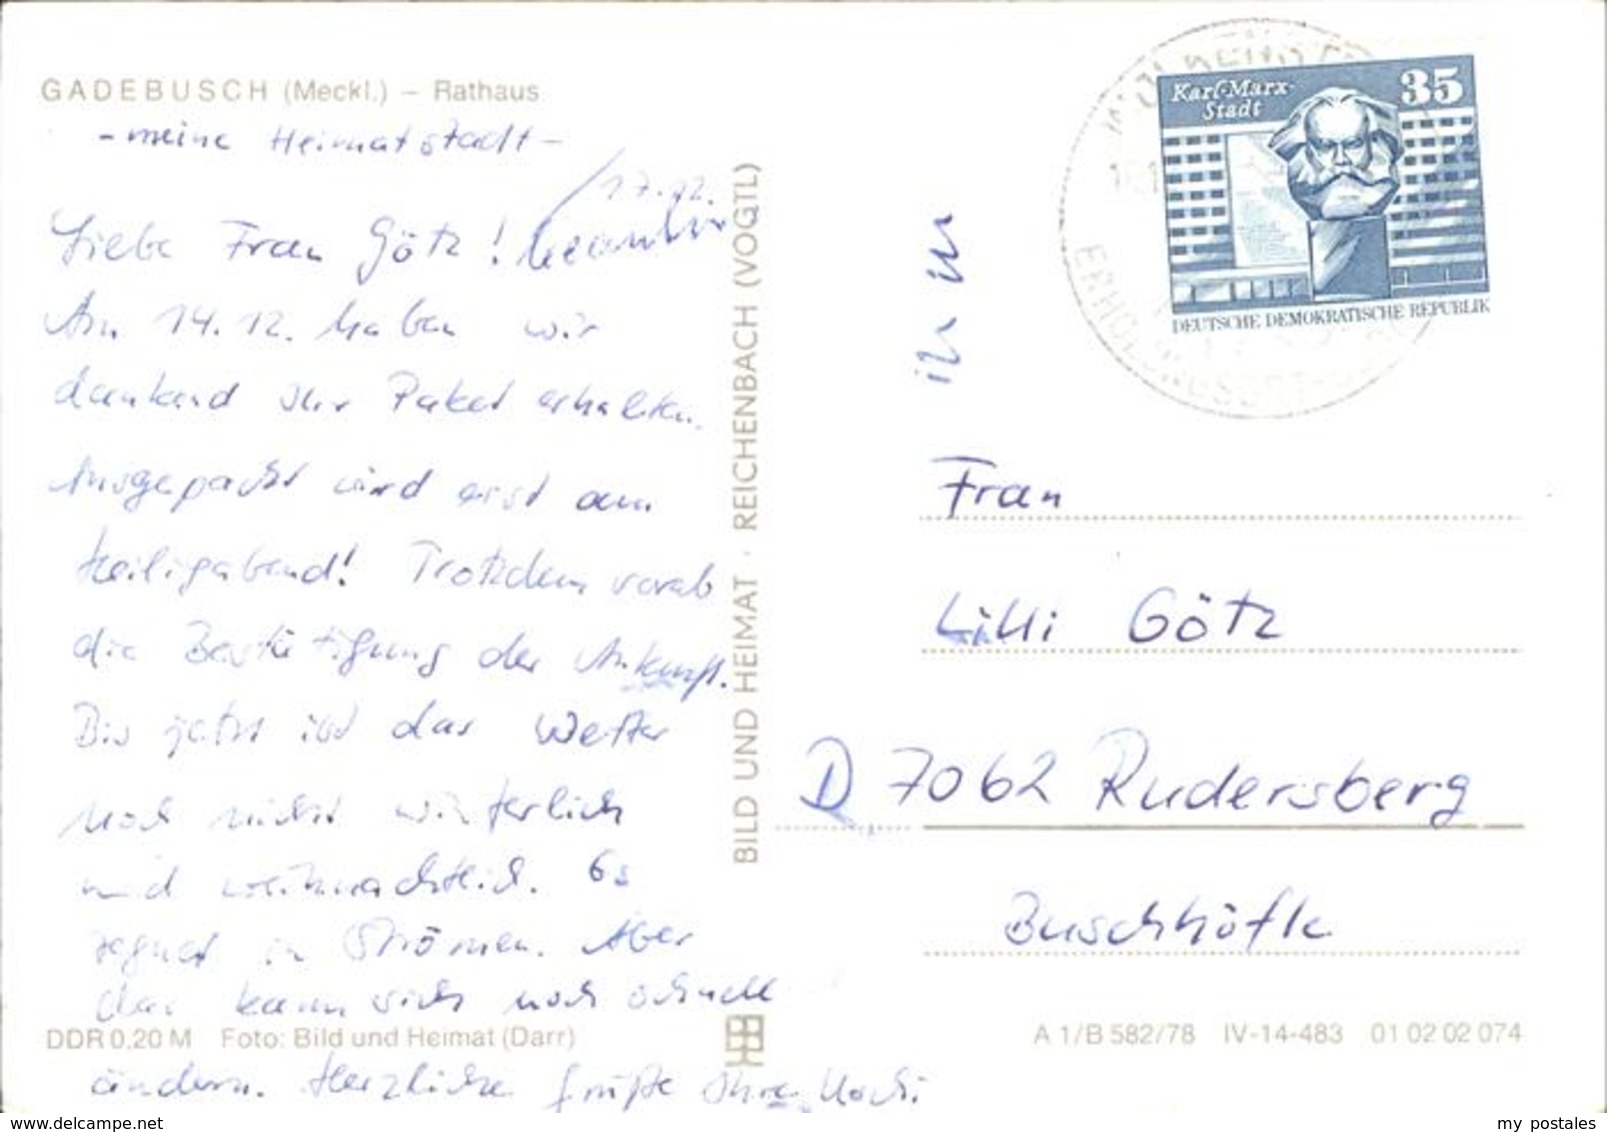 GADEBUSCH (Meckl.) – Rathaus
- meine Heimatstadt -
17.12.
Liebe Frau Götz!
Am 14.12. haben wir
dankend Ihr Paket erhalten.
Ausgepackt wird erst am
Heiligabend! Trotzdem vorab
die Bestätigung der Ankunft.
Bis jetzt ist das Wetter
noch nicht winterlich
und weihnachtlich. Es
regnet in Strömen. Aber
das kann sich noch schnell
DDR 0,20 M Foto: Bild und Heimat (Darr)
ändern. Herzliche Grüße Ihre
BILD UND HEIMAT · REICHENBACH (VOGTL)
Karl-Marx-
Stadt
35
DEUTSCHE DEMOKRATISCHE REPUBLIK
Frau
Lilli Götz
D 7062 Rudersberg
Buschhöfle
A 1/B 582/78 IV-14-483 01 02 02 074
my postales